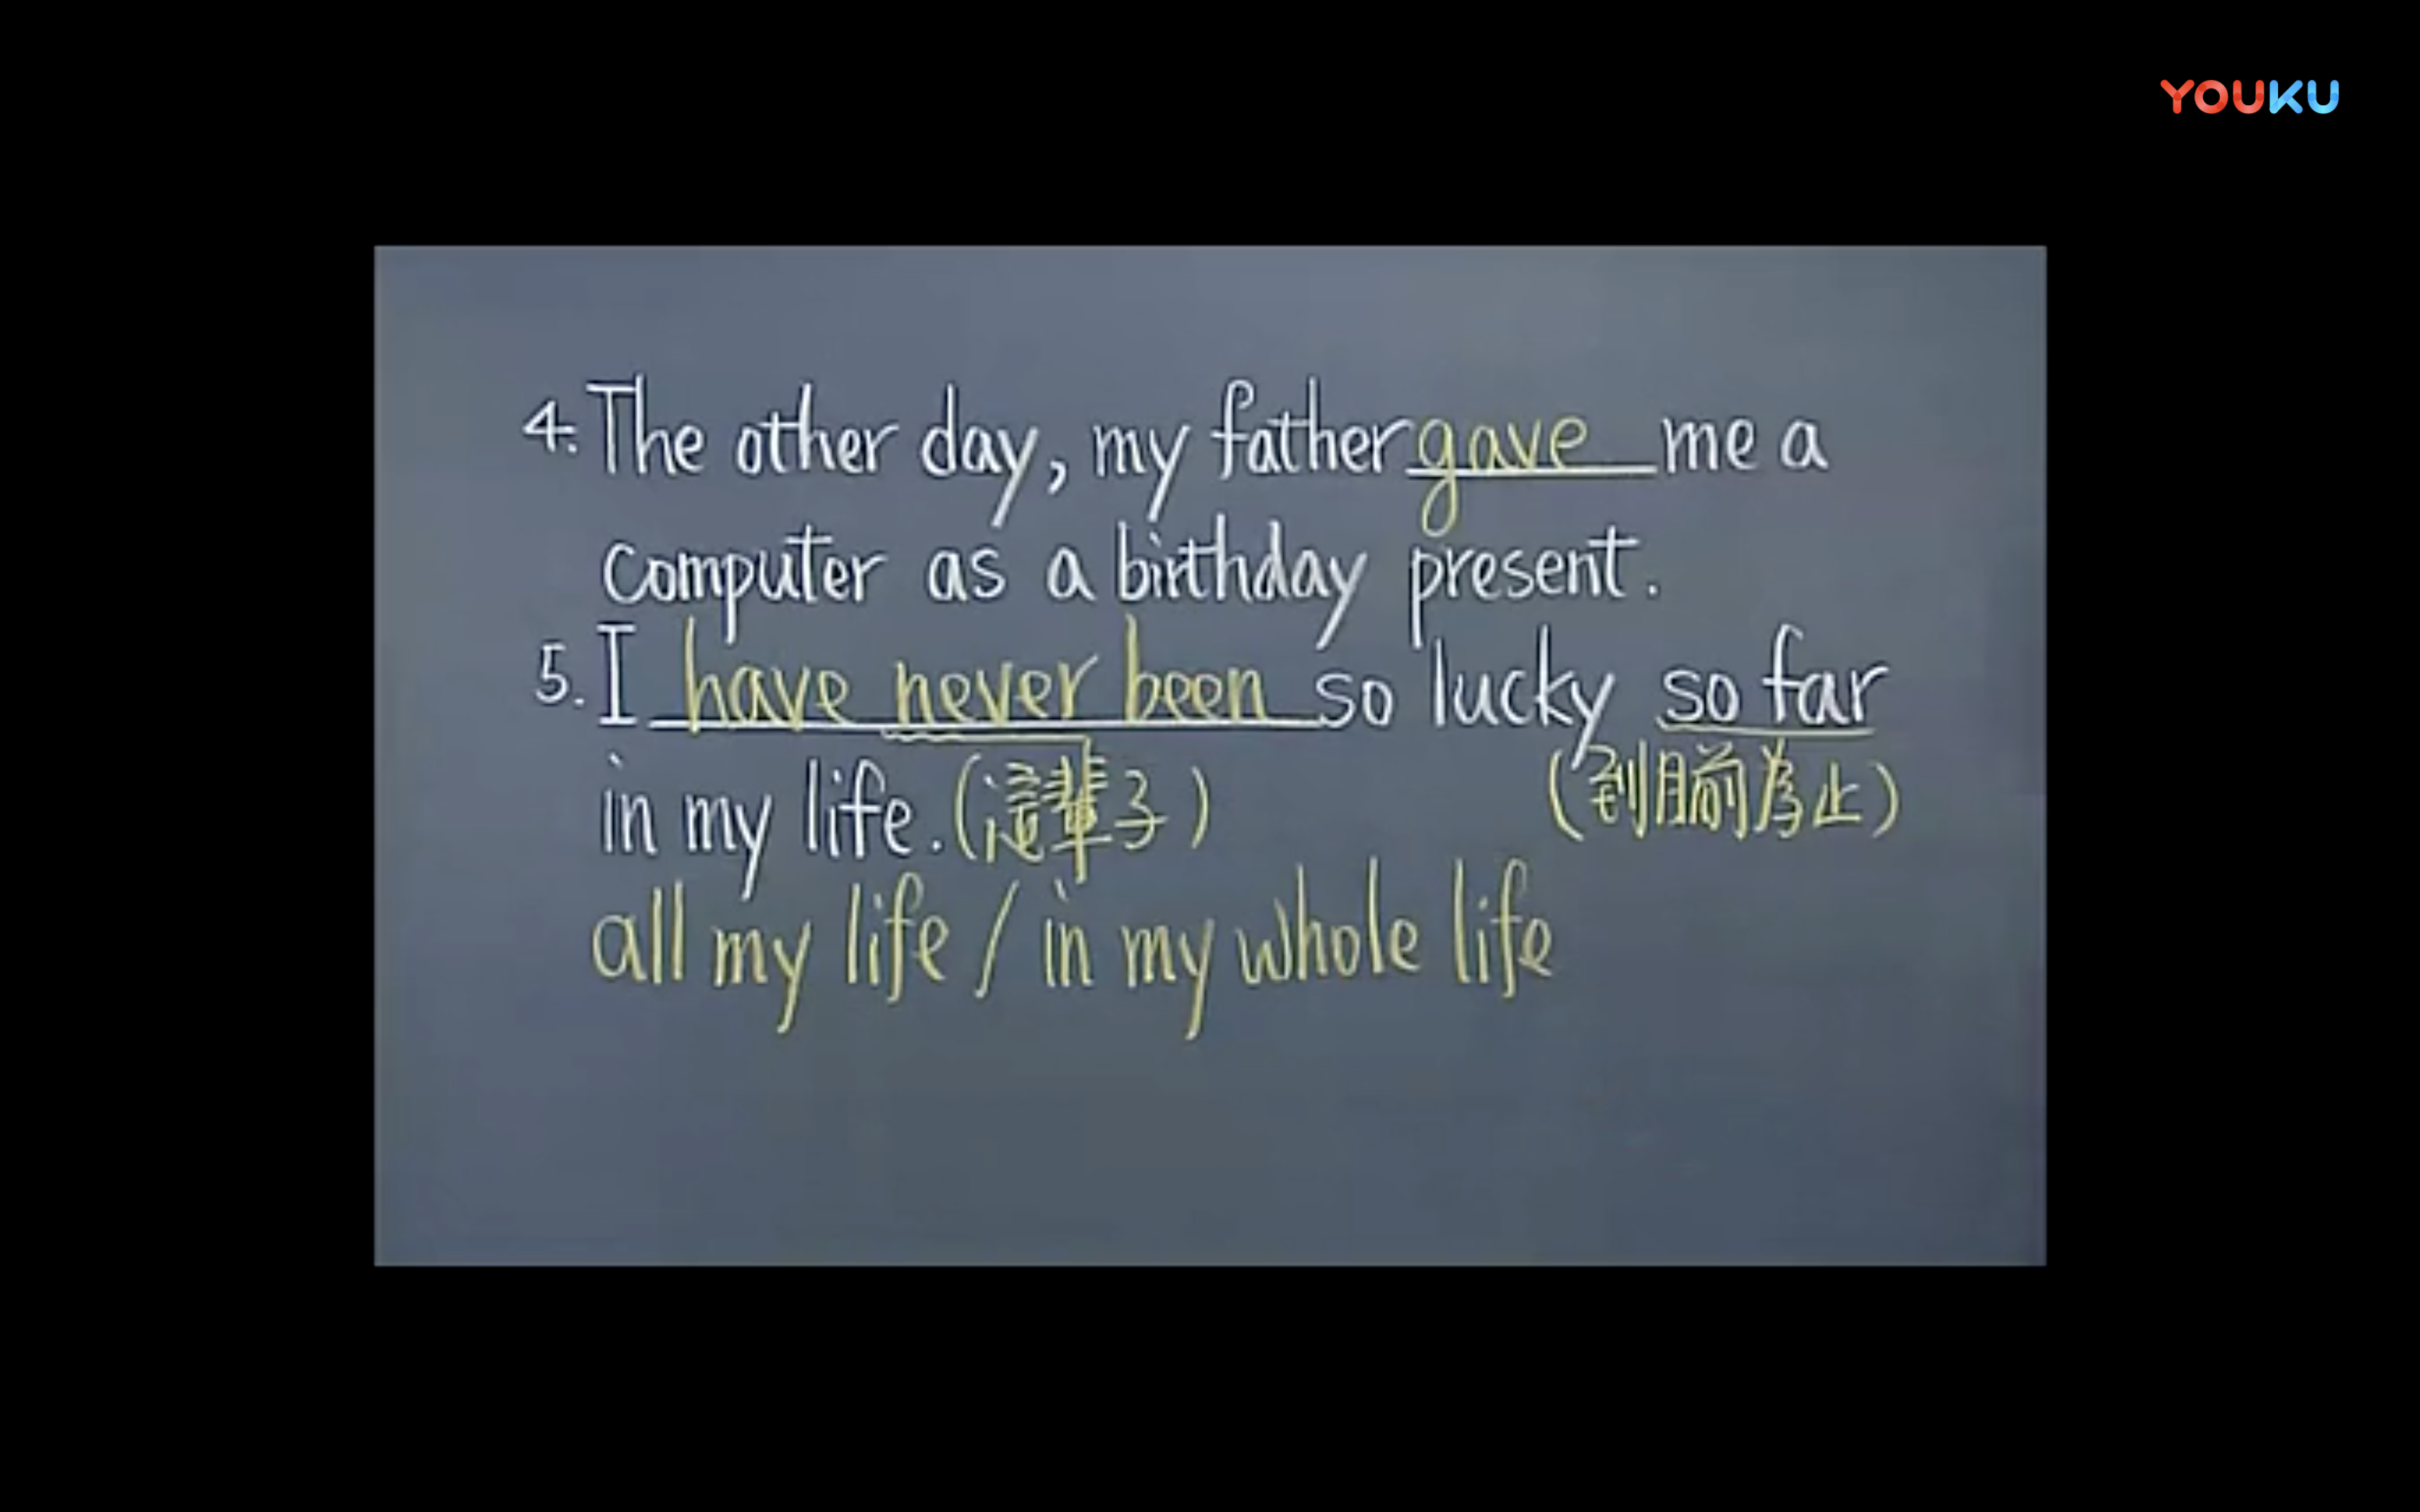 YOUKU
4. The other day, my father gave me a
computer as a birthday present.
5. I have never been so lucky so far
in my life. (這輩子) (到目前為止)
all my life / in my whole life